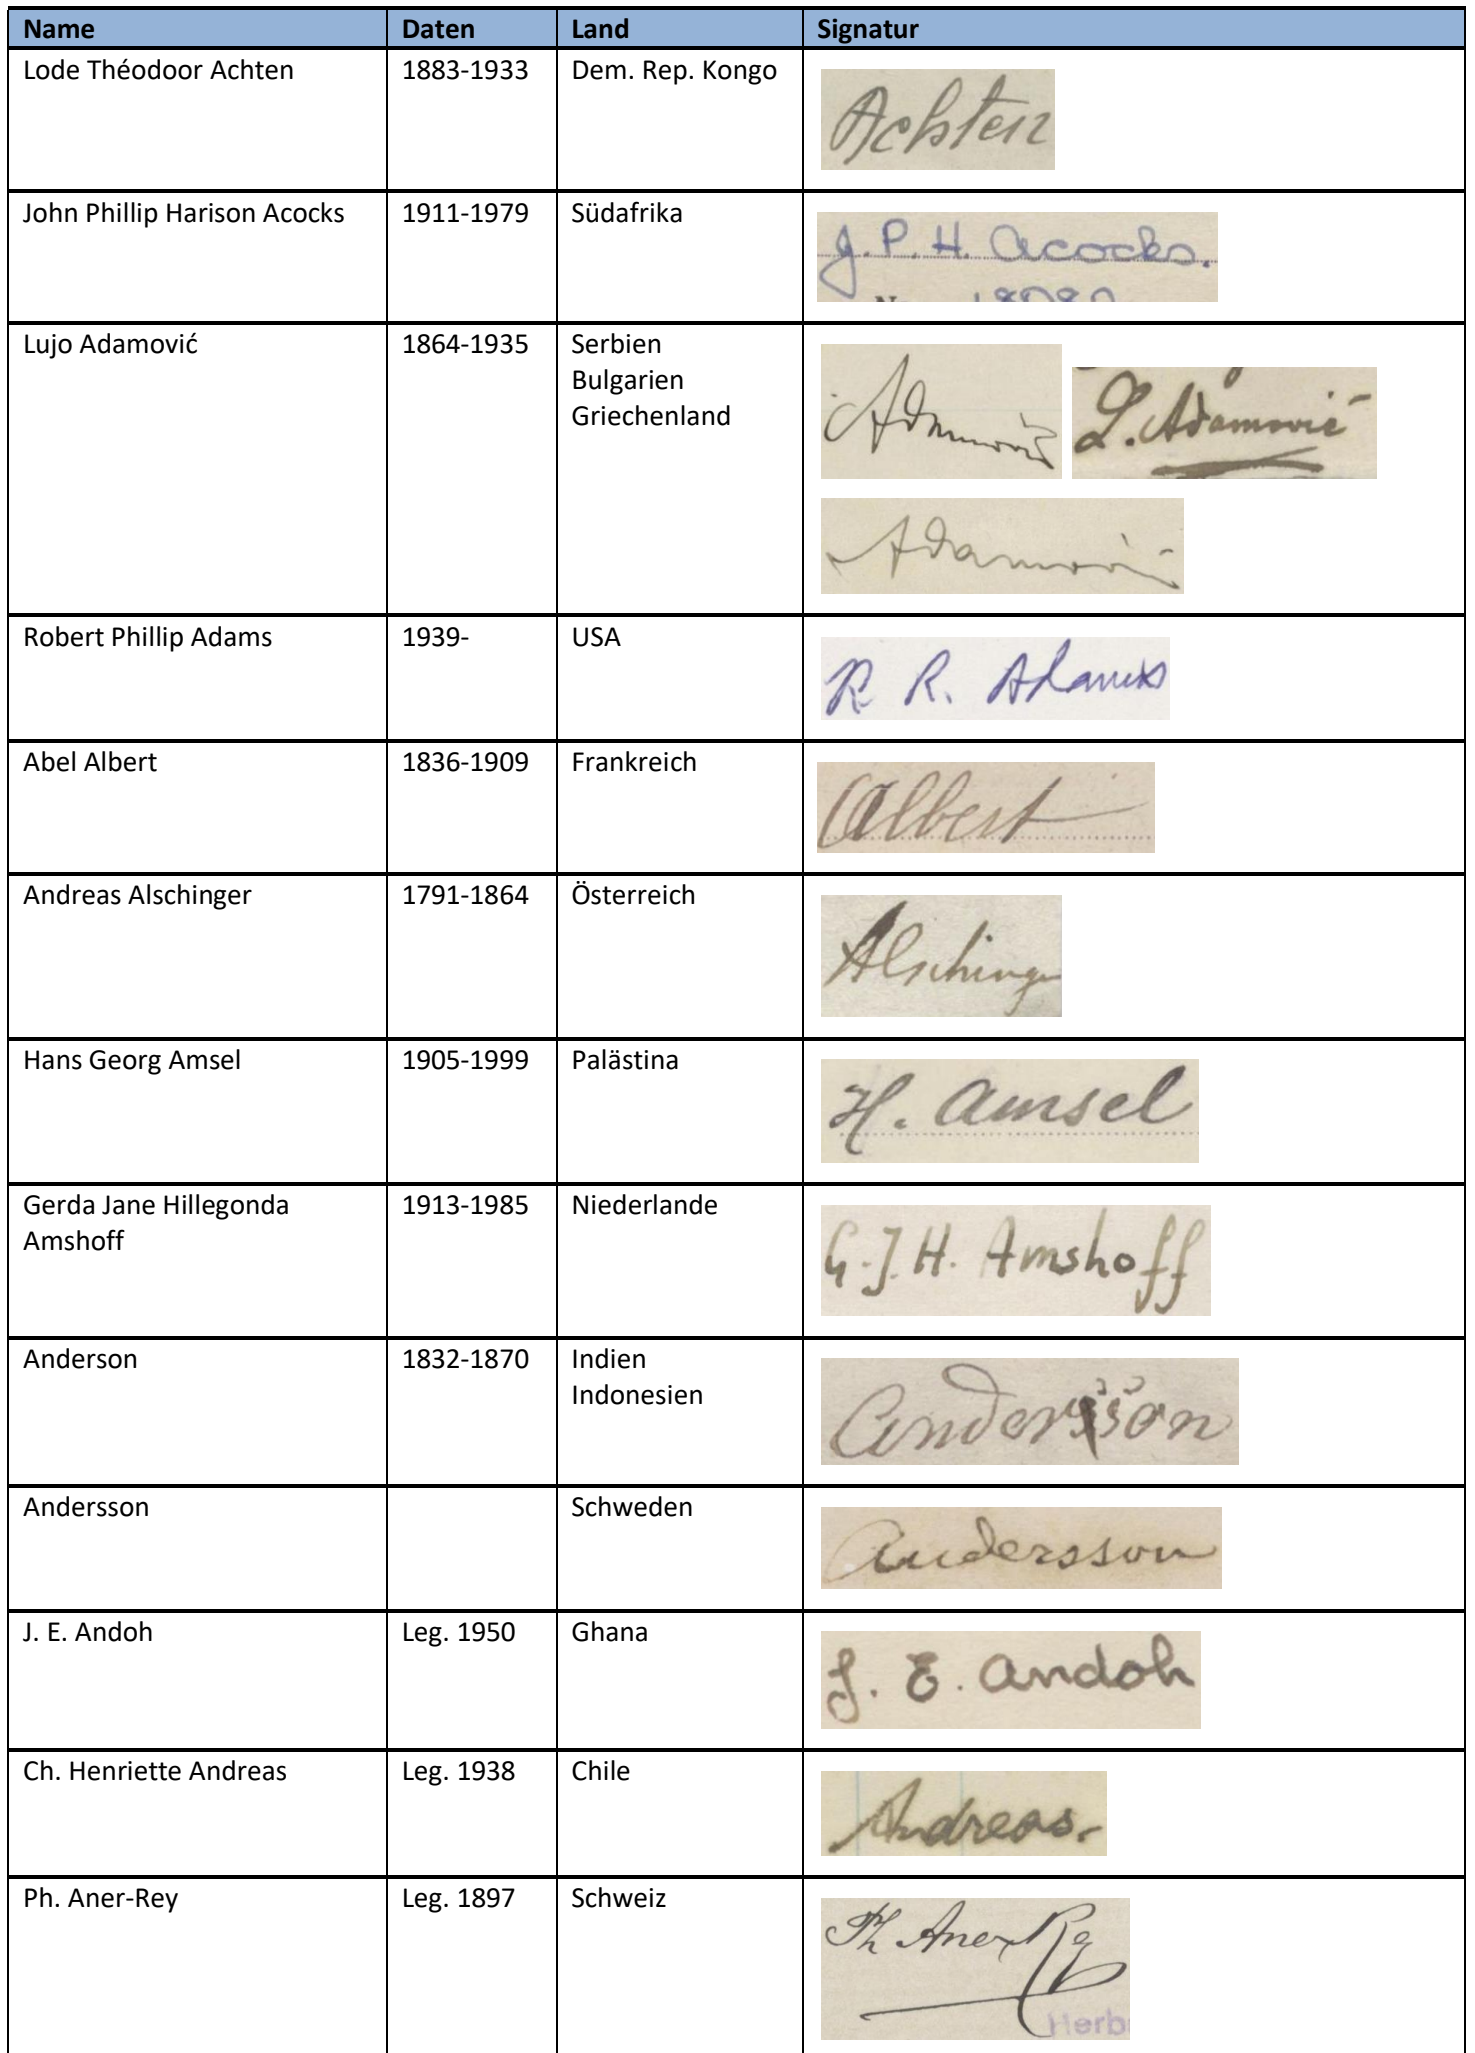 Name Daten Land Signatur
Lode Théodoor Achten 1883-1933 Dem. Rep. Kongo
Achten
John Phillip Harison Acocks 1911-1979 Südafrika
J. P. H. Acocks.
Lujo Adamović 1864-1935 Serbien
Bulgarien
Griechenland
Adamović L. Adamović
Adamović
Robert Phillip Adams 1939- USA
R. Adams
Abel Albert 1836-1909 Frankreich
Albert
Andreas Alschinger 1791-1864 Österreich
Alschinger
Hans Georg Amsel 1905-1999 Palästina
H. Amsel
Gerda Jane Hillegonda 1913-1985 Niederlande
Amshoff
G. J. H. Amshoff
Anderson 1832-1870 Indien
Indonesien
Andersson
Andersson Schweden
Andersson
J. E. Andoh Leg. 1950 Ghana
J. E. Andoh
Ch. Henriette Andreas Leg. 1938 Chile
Andreas.
Ph. Aner-Rey Leg. 1897 Schweiz
Ph Aner-Rey
Herb